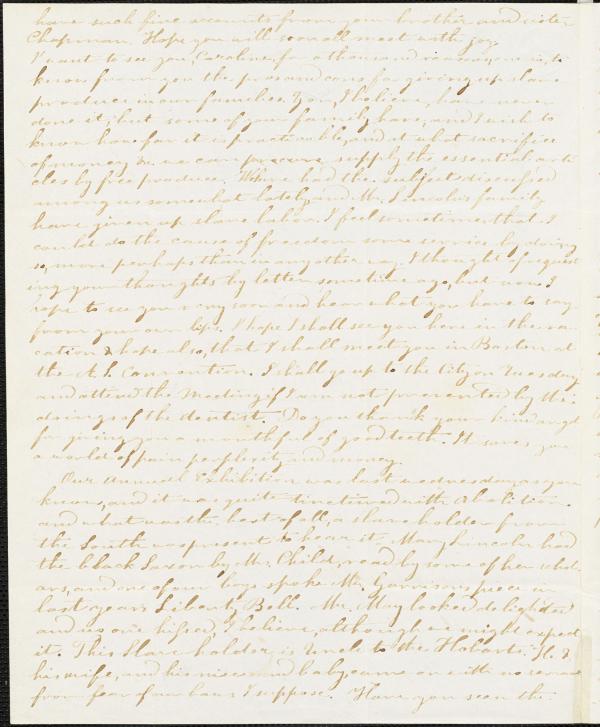 have such fine accounts from your brother and sister
Chapman. Hope you will soon all meet with joy.
I want to see you, Caroline, for a thousand reasons, one is, to
know from you the pros and cons for giving up slave
produce in our families. You, I believe, have never
done it; but some of your family have, and I wish to
know how far it is practicable, and at what sacrifice
of money we can procure supply the essential arti
cles by free produce. We have had the subject discussed
among us somewhat lately and Mr. Lincoln's family
have given up slave labor. I feel sometimes that I
could do the cause of freedom some service by doing
so, more perhaps than in any other way. I thought of request
ing your thoughts by letter sometime ago, but now I
hope to see you very soon and hear what you have to say
from your own lips. I hope I shall see you here in the va-
cation & hope also, that I shall meet you in Boston at
the A. S. Convention. I shall go up to the City on Tuesday
and attend the Meeting if I am not prevented by the
doings of the dentist. Do you thank your kind angel
for giving you a mouthful of good teeth. It saves you
a world of pain perplexity and money.
Our Annual Exhibition was last wednesday, as you
know, and it was quite tinctured with Abolition.
and what was the best of all, a slave holder from
the South was present to hear it. Mary Lincoln had
the black Saxon by Mrs. Child, read by some of her schol
ars, and one of our boys spoke Mr. Garrison's piece in
last years Liberty Bell. Mr. May looked delighted
and no one hissed, I believe, although we might expect
it. This Slave holder is Uncle to the Hobarts. He &
his wife, and his niece and baby came on with no servant
from fear of our laws I suppose. Have you seen the